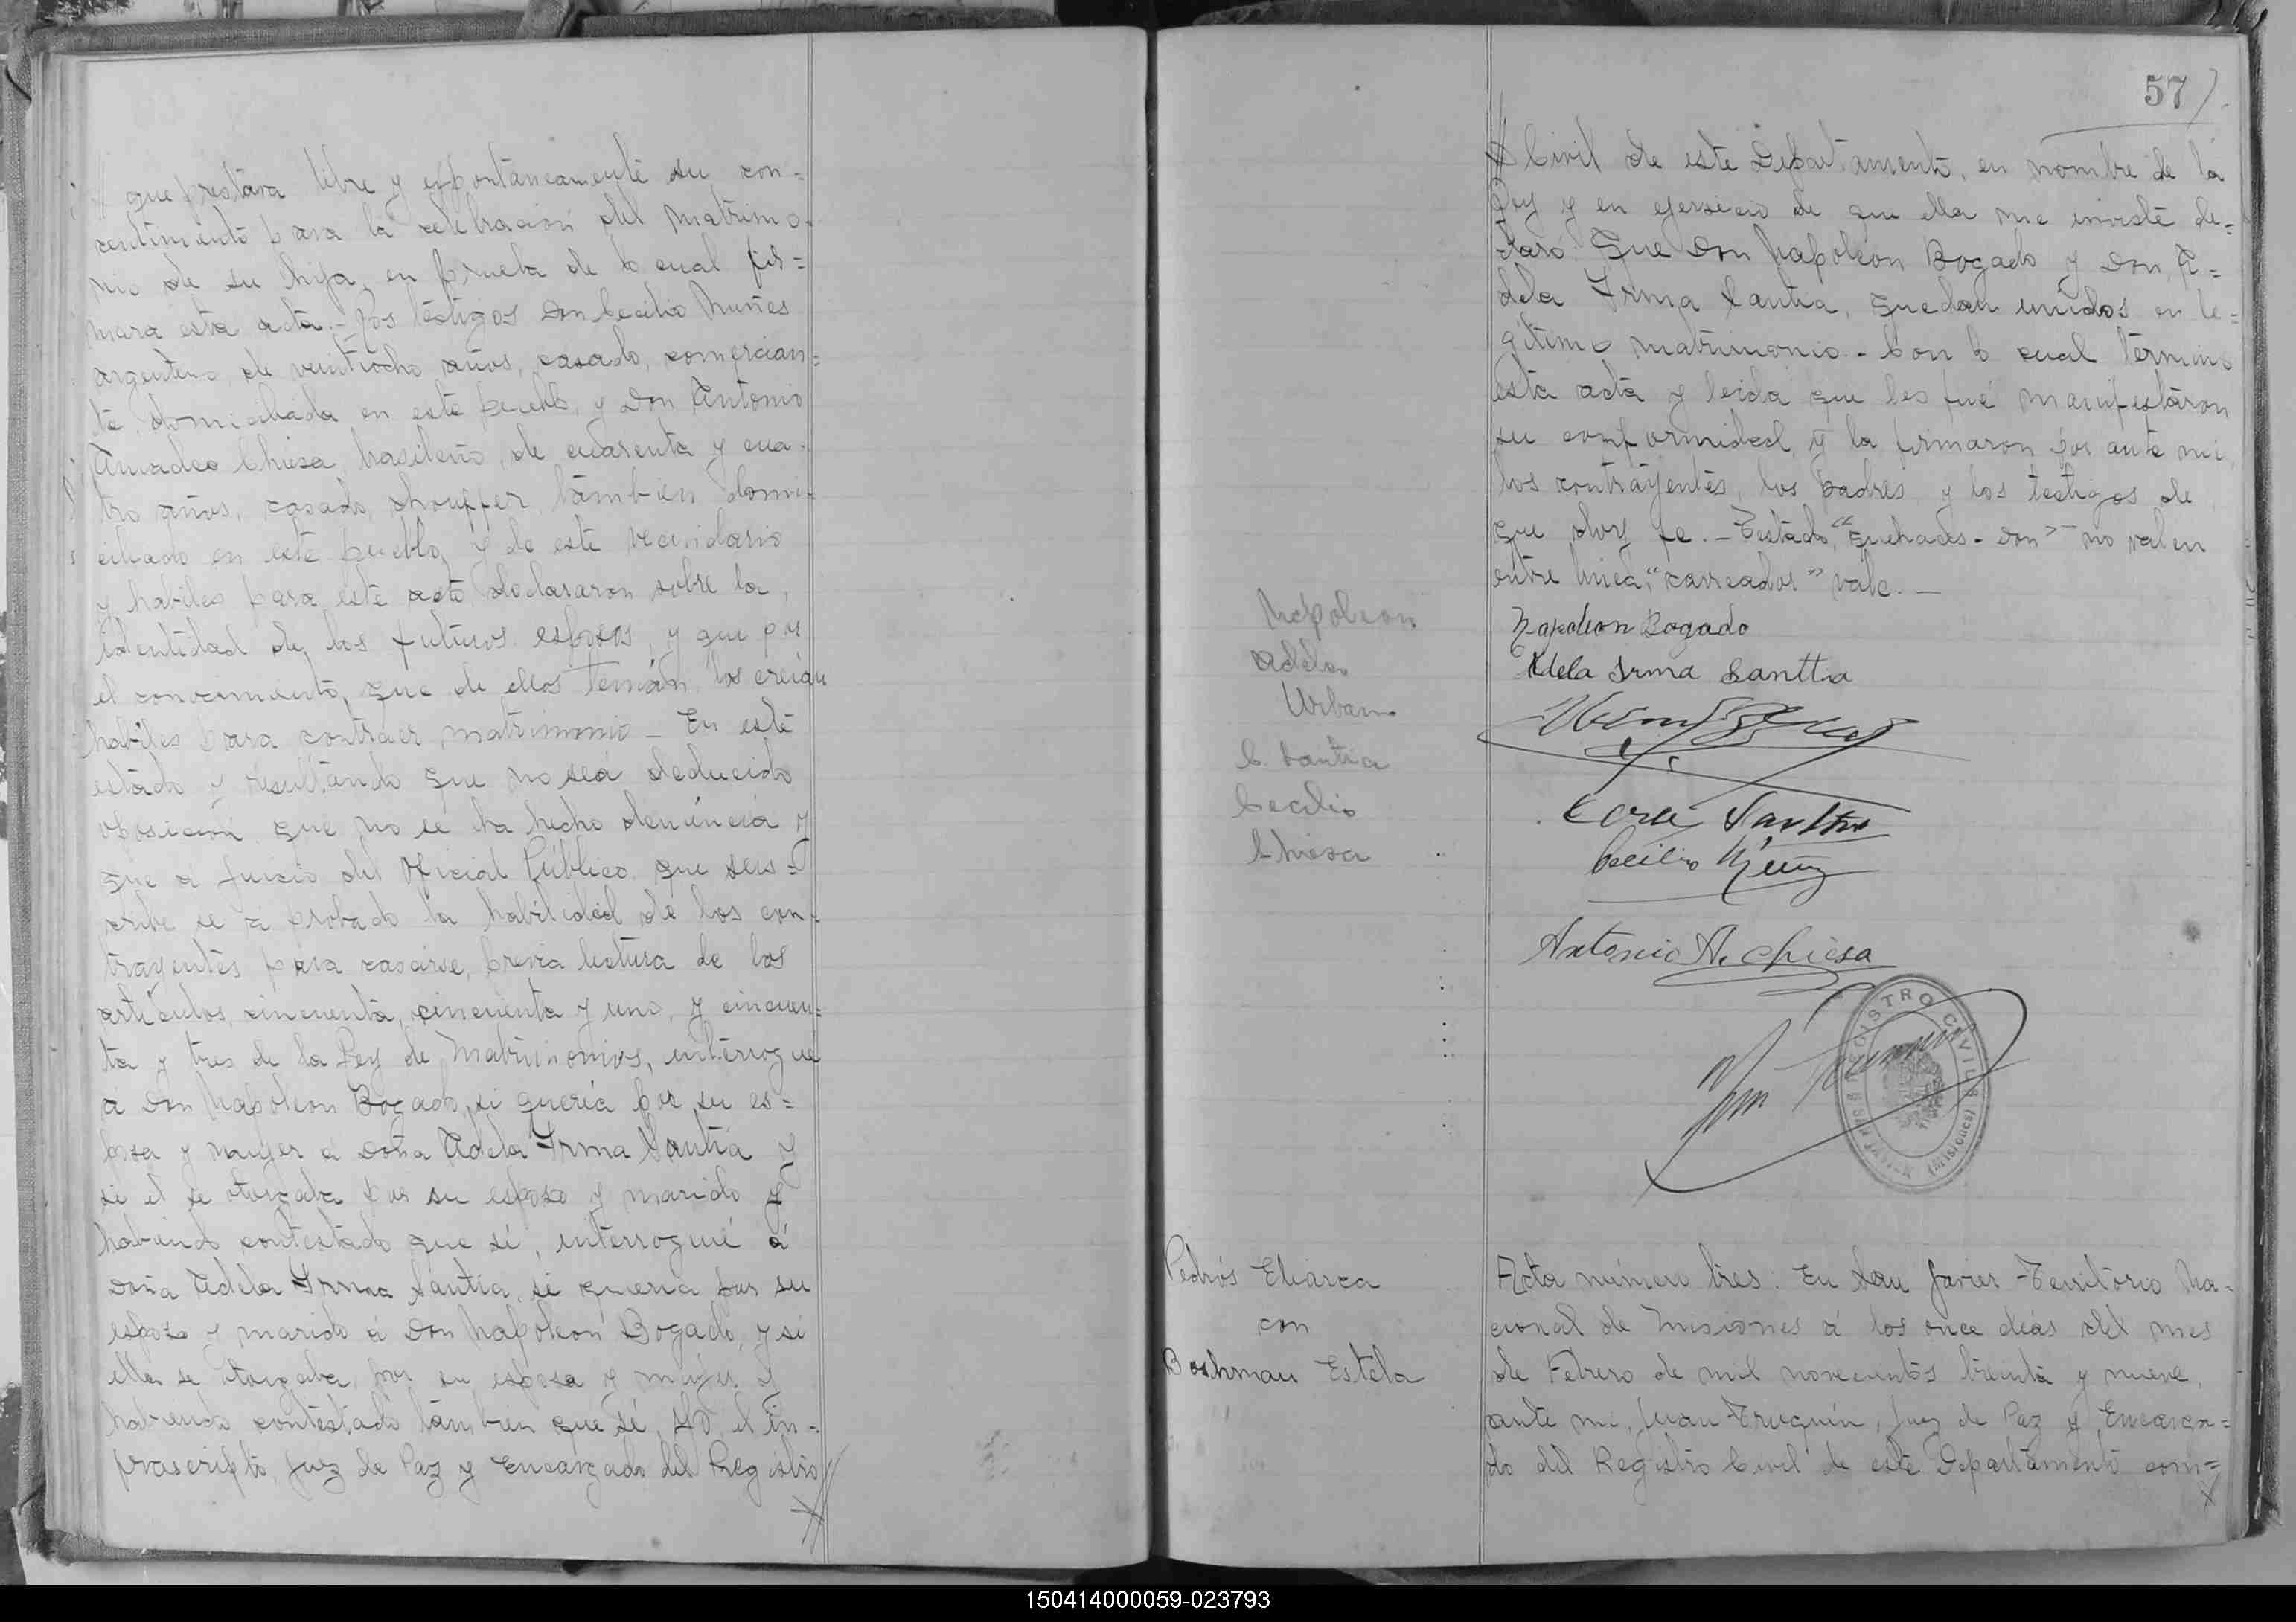 que prestara libre y espontáneamente su con=
sentimiento para la celebración del matrimo-
nio de su hija, en prueba de lo cual fir=
mara esta acta.- Los testigos Don Cecilio Nuñes
argentino, de veintiocho años, casado, comercian=
te, domiciliada en este pueblo, y Don Antonio
Amadeo Chiesa, brasileño, de cuarenta y cua-
tro años, casado, chouffer, tambien domi-
ciliado en este pueblo y de este vecindario
y habiles para este acto declararon sobre la
identidad de los futuros esposos, y que por
el conocimiento, que de ellos tenián, los creián
habiles para contraer matrimonio - En este
estado y resultando que no seá deducido
oposición que no se ha hecho denúncia y
que á juicio del Oficial Público que sus=
cribe se á probado la habilidad de los con=
trayentes para casarse, previa lectura de los
artículos, cincuenta, cincuenta y uno, y cincuen=
ta y tres de la Ley de Matrimonios, interrogue
a Don Napoleon Bogado, si queriá por su es=
posa y mujer á Doña Adela Yrma Santia y
si el se otorgaba por su esposo y marido y
habiendo contestado que sí, interrogué á
Doña Adela Yrma Santia, si queria por su
esposo y marido á Don Napoleon Bogado, y si
ella se otorgaba por su esposa y mujer y
habiendo contestado tambien que sí, Yo, el in-
frascripto, Juez de Paz y Encargado del Registro
57
Civil de este Departamento, en nombre de la
Ley y en ejersicio de que ella me inviste de=
claro: Que Don Napoleon Bogado y Don A=
dela Yrma Santia, quedan unidos en le=
gitimo matrimonio.- Con lo cual termino
esta acta y leida que les fué manifestaron
su conformidad, y la firmaron por ante mi,
los contrayentes, los padres y los testigos de
que doy fe.- Testado, "quehaces - Don" - no valen
entre linea, "carreador" vale.-
Napoleon
Adela
Urbano
C. Santia
Cecilio
Chiesa
Napoleon Bogado
Adela Irma Santtia
Cecilio Nuñez
Antonio A. Chiesa
REGISTRO CIVIL
SAN JAVIER (Misiones)
Pedrós Eliárea
con
Boshmau Estela
Acta número tres: En San Javier - Territorio Na-
cional de Misiones á los once diás del mes
de Febrero de mil novecientos treinta y nueve,
ante mi, Juan Truquin, Juez de Paz y Encarga=
do del Registro Civil de este Departamento com=
150414000059-023793